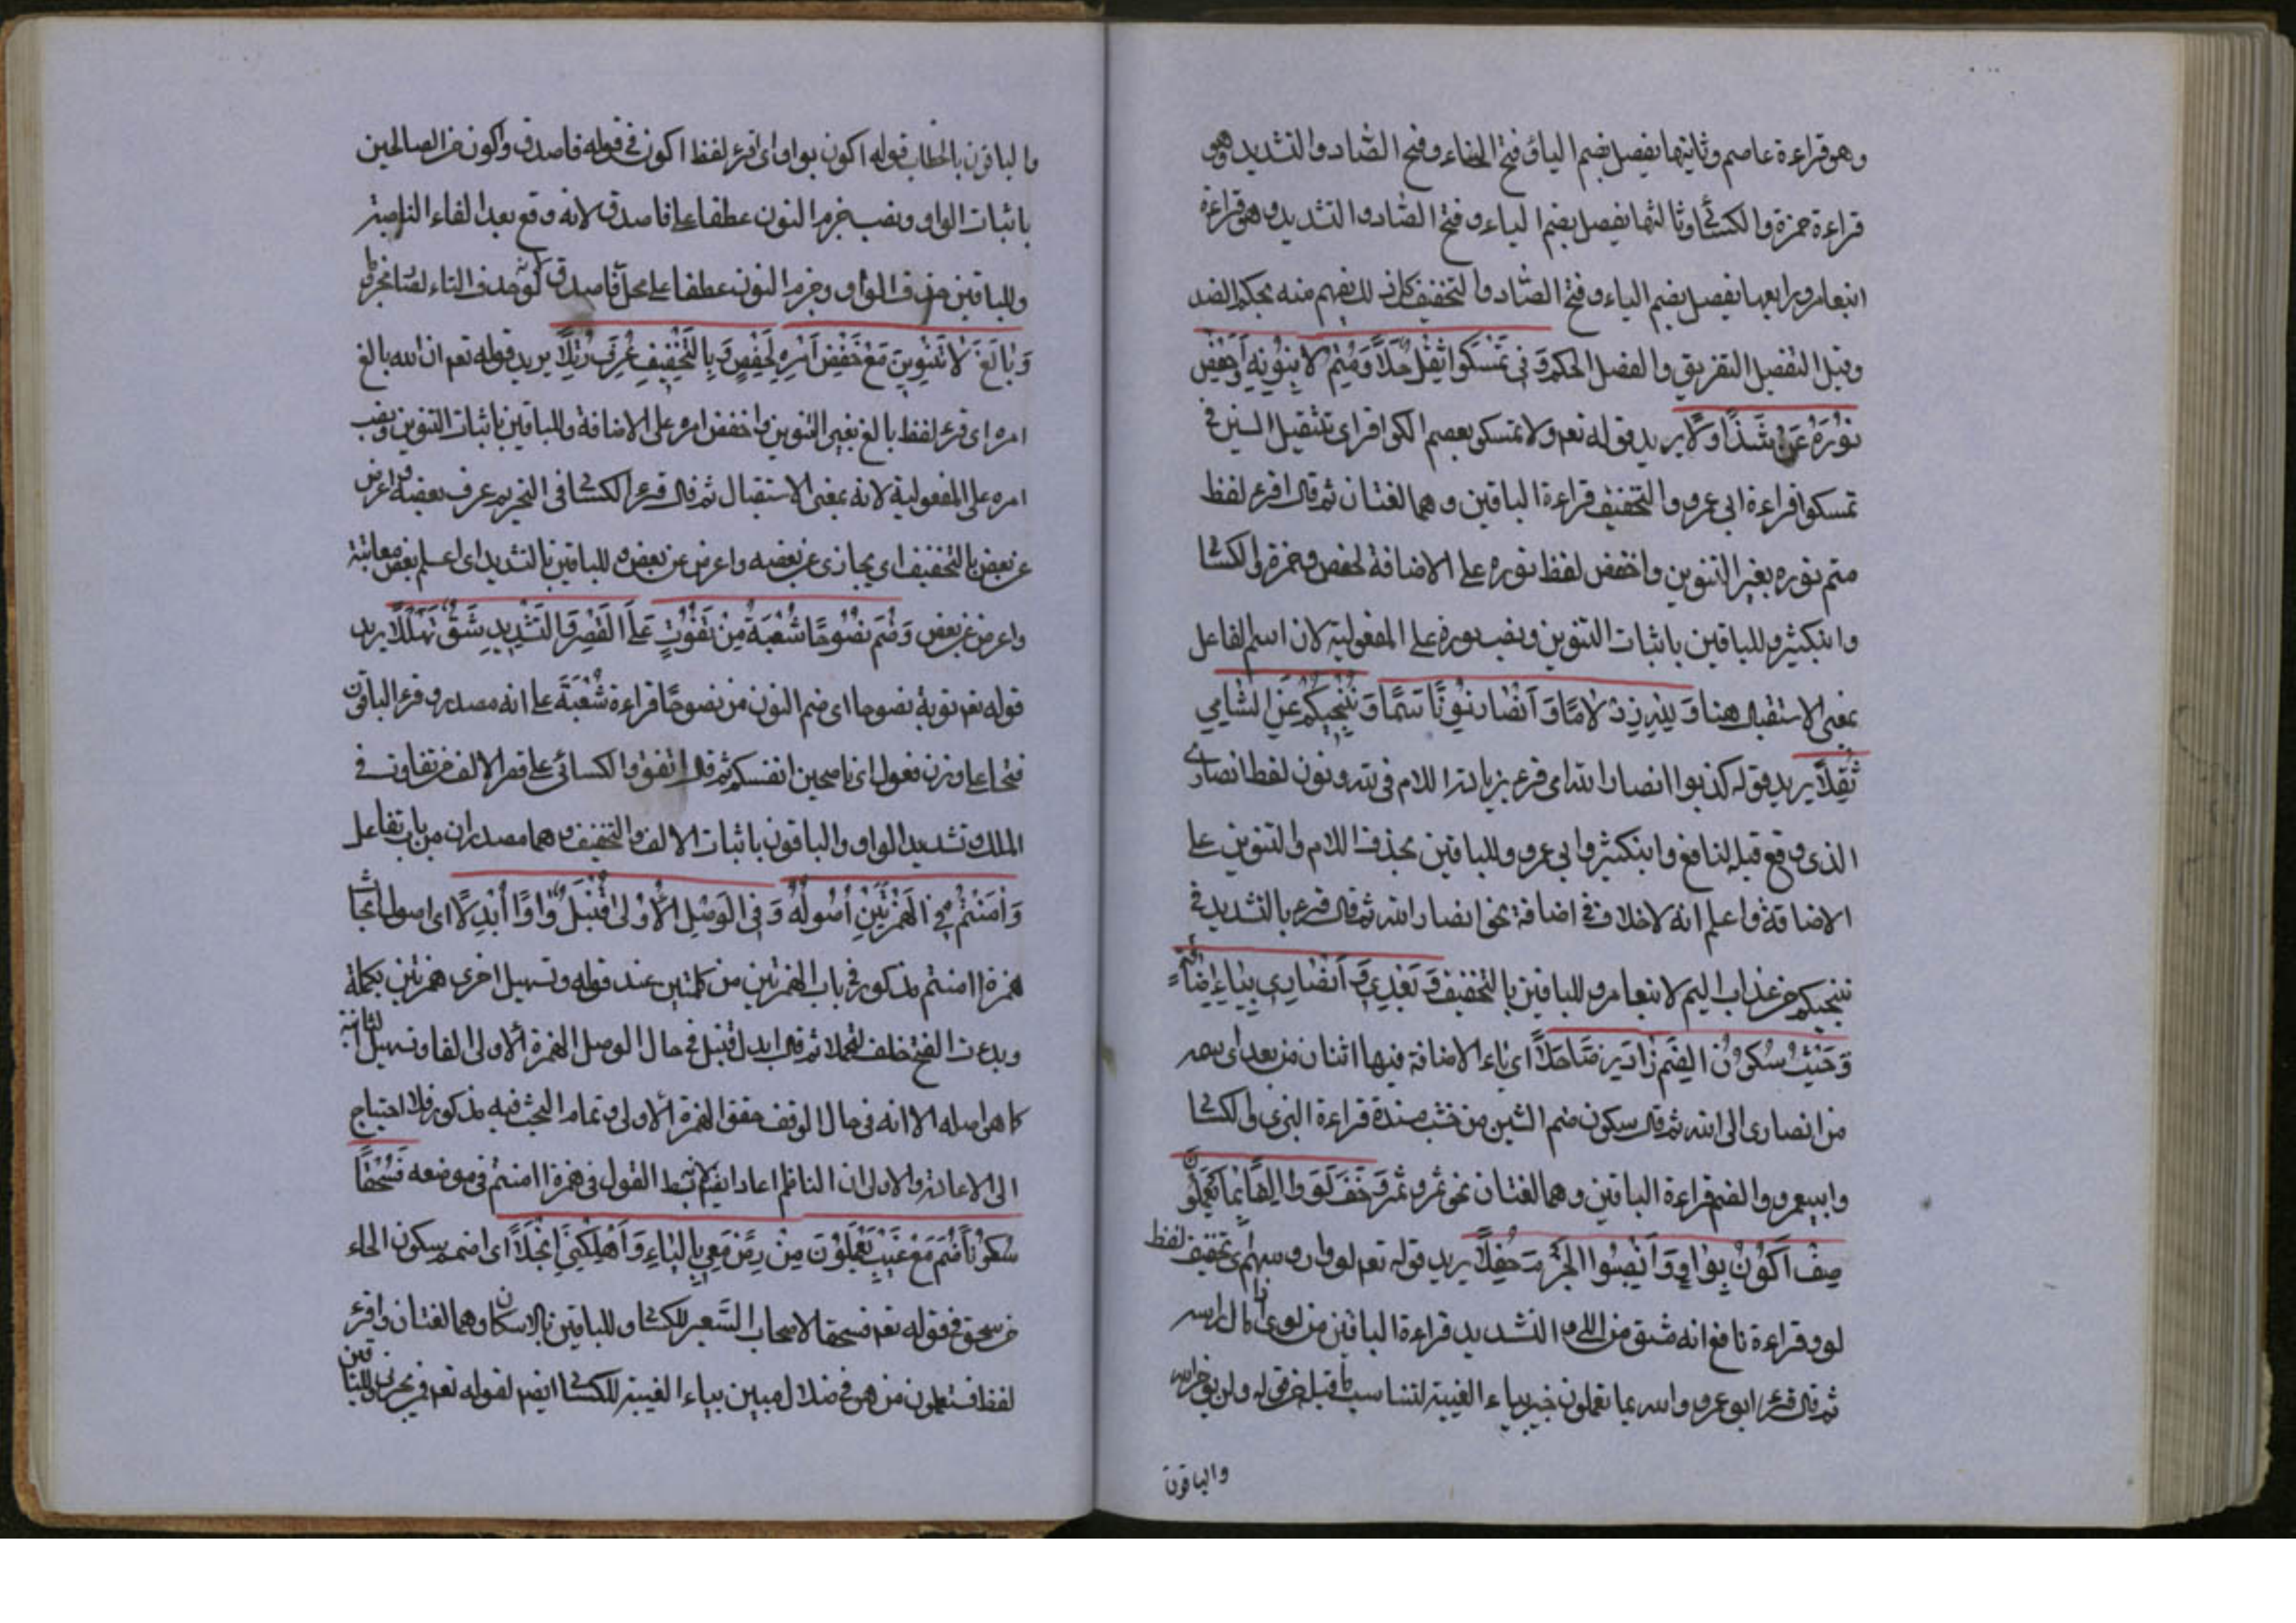 وهو قراءة عاصم وثانيتها يفصل بضم الياء وفتح الفاء وفتح الصاد والتشديد وهو
قراءة حمزة والكسائى وثالثها يفصل بضم الياء وفتح الصاد والتشديد وهو قراءة
ابنعامر ورابعها يفصل بضم الياء وفتح الصاد والتخفيف كل ذلك يفهم منه بحكم الضد
وقيل التفصيل التفريق والفصل الحكم وَفى تَمْسَكوا ثِقْلٌ حَلَا وَمُتِمُّ لا تُنَوِّنْهُ وَاخْفِضْ
نُورَهُ عَنْ شَذًا دَلَا يريد قوله تعم ولا تمسكو بعصم الكوافر اى بتثقيل السين فى
تمسكوا قراءة ابى عمرو والتخفيف قراءة الباقين وهما لغتان ثم قال اقرء لفظ
متم نوره بغير التنوين واخفض لفظ نوره على الاضافة لحفص وحمزة والكسائى
وابنكثير وللباقين باثبات التنوين ونصب نوره على المفعولية لان اسم الفاعل
بمعنى الاستقبال هنا وَلِلّهِ زِدْ لَامًا وَاَنْصَارَ نَوِّنًا سَمَا وَتُنْجِيكُمْ عَنِ الشَّامِى
ثُقِّلَا يريد قوله كونوا انصارا لله اى قرء بزيادة اللام فى لله ونون لفظ انصار
الذى وقع قبله لنافع وابنكثير وابى عمرو وللباقين بحذف اللام والتنوين على
الاضافة واعلم انه لاخلاف فى اضافة نحن انصار الله ثم قال قرء بالتشديد فى
تنجيكم من عذاب اليم لابنعامر وللباقين بالتخفيف وَبَعْدِى وَاَنْصَارِى بِيَاءِ اِضَافَةٍ
وَخُشْبٌ سُكُونُ الضَّمِّ زَادَ رِضًا حَلَا اى ياء الاضافة فيها اثنان من بعدى اسمه
من انصارى الى الله ثم قال سكون ضم الشين من خشب مسندة قراءة البزى والكسائى
وابيعمرو والضم قراءة الباقين وهما لغتان نحو ثمر وثمر وَخَفَّ لَوَوْا اِلْفًا بِمَا يَعْمَلُونَ
صِفْ اَكُونَ بِوَاوٍ وَانْصِبُوا الْجَزْمَ حُفَّلَا يريد قوله تعم لووا رؤسهم اى تخفيف لفظ
لووا قراءة نافع انه مشتق من اللى والتشديد قراءة الباقين من لوى اى امال راسه
ثم قال قرء ابوعمرو والله بما تعملون خبير بياء الغيبة لتناسب ما قبله من قوله ولن يؤخر الله
والباقون
والباقون بالخطاب قوله اكون بواو اى اقرء لفظ اكون فى قوله فاصدق واكون من الصالحين
باثبات الواو ونصب جزم النون عطفا على فاصدق لانه وقع بعد الفاء الناصبة
وللباقين حذف الواو وجزم النون عطفا على محل فاصدق
وَبَالِغُ لَا تَنْوِينَ مَعْ خَفْضِ اَمْرِهِ لِحَفْصٍ وَبِالتَّخْفِيفِ عَرَّفَ رُفِّلَا يريد قوله تعم ان الله بالغ
امره اى قرء لفظ بالغ بغير التنوين واخفض امره على الاضافة وللباقين باثبات التنوين ونصب
امره على المفعولية لانه بمعنى الاستقبال ثم قال قرء الكسائى فى التحريم عرف بعضه واعرض
عن بعض بالتخفيف اى يجازى عن بعضه واعرض عن بعض وللباقين بالتشديد اى اعلم بعض معاتبة
واعرض عن بعض وَضَمَّ نَصُوحًا شُعْبَةٌ مِنْ تَفَوُّتٍ عَلَى الْقَصْرِ وَالتَّشْدِيدِ شَقَّ تَهَلُّلَا يريد
قوله تعم توبة نصوحا اى ضم النون من نصوحًا قراءة شُعْبَةَ على انه مصدر وقرء الباقون
فتحا على وزن فعول اى ناصحين انفسكم ثم قال اتفقوا الكسائى على قصر الالف من تفاوت فى
الملك وتشديد الواو والباقون باثبات الالف والتخفيف وهما مصدران من باب تفاعل
وَآمَنْتُمُ فِى الْهَمْزَتَيْنِ اُصُولُهُ وَفِى الْوَصْلِ الْاُولَى قُنْبُلٌ وَاوًا اُبْدِلَا اى اصول ابحاث
همزة اامنتم مذكور فى باب الهمزتين من كلمتين عند قوله وتسهيل اخرى همزتين بكلمة
وبذات الفتح خلف لتجملا ثم قال ابدل قنبل فى حال الوصل الهمزة الاولى الفا وتسهيل الثانية
كما هو اصله الا انه فى حال الوقف حقق الهمزة الاولى وتمام البحث فيه مذكور فلا احتياج
الى الاعادة والاولى ان الناظم اعاد ايضا بسط القول فى همزة اامنتم فى موضعه فَسُحْقًا
سُكُونًا ضُمَّ مَعْ غَيْبِ يَعْلَمُونَ مِنْ رِضْ مَعِى بِالْيَاءِ وَاَهْلَكَنِى انْجَلَا اى اضمم سكون الحاء
من سحق فى قوله تعم فسحقا لاصحاب السعير للكسائى وللباقين بالاسكان وهما لغتان واقرء
لفظ فستعلمون من هو فى ضلال مبين بياء الغيبة للكسائى ايضا لقوله تعم فمن يجير وللباقين